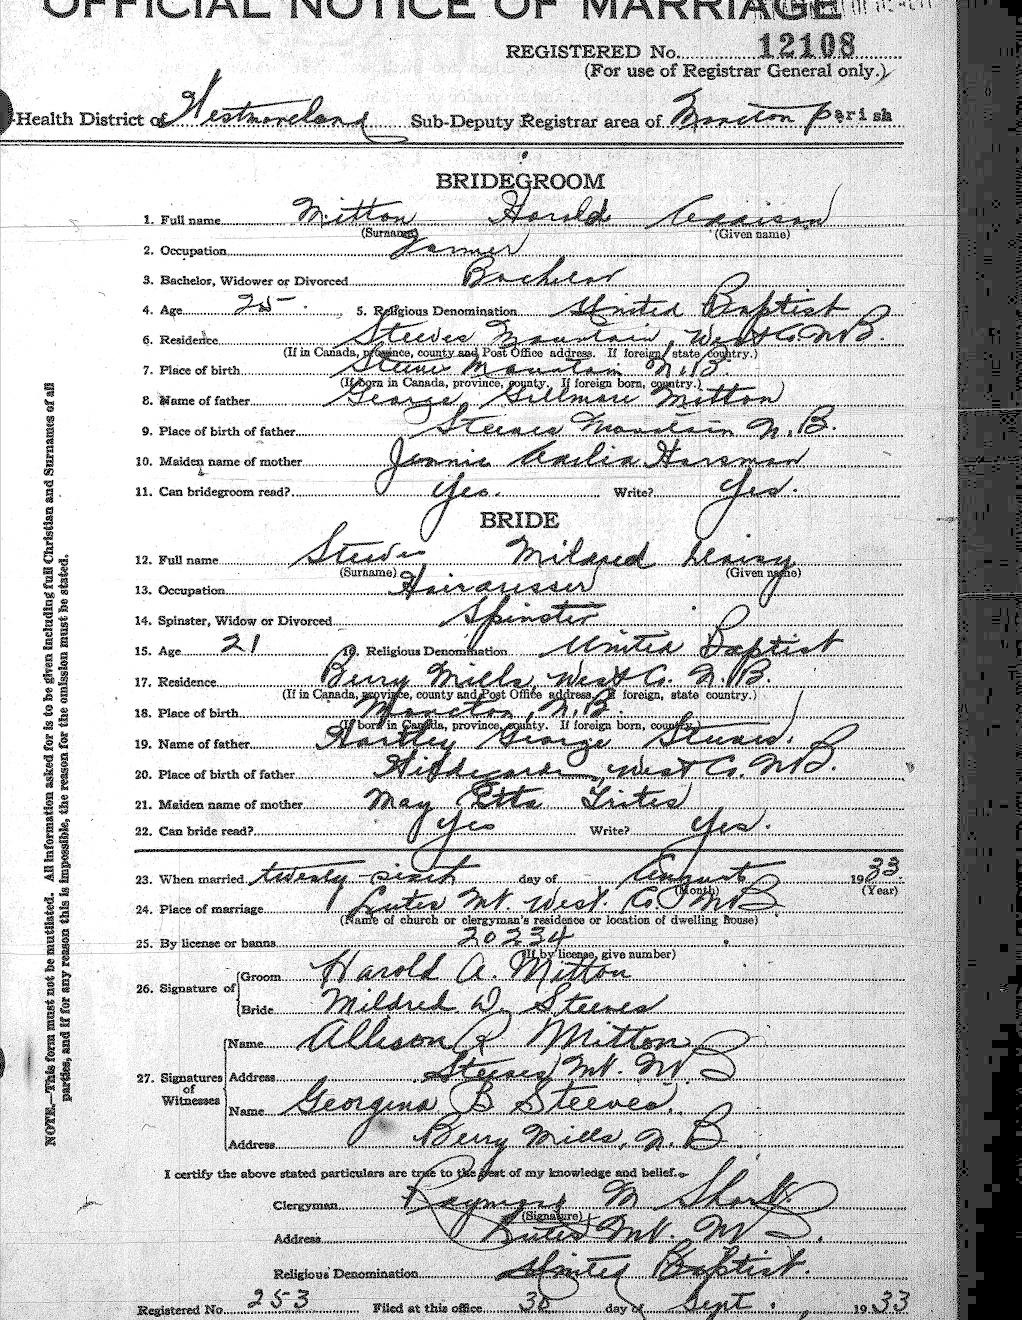 OFFICIAL NOTICE OF MARRIAGE
REGISTERED No. 12108
(For use of Registrar General only.)
Health District of Westmoreland Sub-Deputy Registrar area of Moncton Parish
BRIDEGROOM
1. Full name Mitton Harold Addison
(Surname) (Given name)
2. Occupation Farmer
3. Bachelor, Widower or Divorced Bachelor
4. Age 25 5. Religious Denomination United Baptist
6. Residence Steeves Mountain, West Co. N.B.
(If in Canada, province, county and Post Office address. If foreign, state country.)
7. Place of birth Steeves Mountain N.B.
(If born in Canada, province, county. If foreign born, country.)
8. Name of father George Gillmore Mitton
9. Place of birth of father Steeves Mountain N.B.
10. Maiden name of mother Jennie Horsman
11. Can bridegroom read? Yes. Write? Yes.
BRIDE
12. Full name Steeves Mildred Daisy
(Surname) (Given name)
13. Occupation Hairdresser
14. Spinster, Widow or Divorced Spinster
15. Age 21 16. Religious Denomination United Baptist
17. Residence Berry Mills, West Co. N.B.
(If in Canada, province, county and Post Office address. If foreign, state country.)
18. Place of birth Moncton, N.B.
(If born in Canada, province, county. If foreign born, country.)
19. Name of father Hartley George Steeves.
20. Place of birth of father West Co. N.B.
21. Maiden name of mother May Etta Trites
22. Can bride read? Yes Write? Yes.
23. When married twenty-sixth day of August 1933
(Month) (Year)
24. Place of marriage Lutes Mt. West. Co. N.B.
(Name of church or clergyman's residence or location of dwelling house)
25. By license or banns 20234
(If by license, give number)
26. Signature of Groom Harold A. Mitton
Bride Mildred D. Steeves
27. Signatures of Witnesses Name Allison R Mitton
Address Steeves Mt. N B
Name Georgina B Steeves.
Address Berry Mills, N. B
I certify the above stated particulars are true to the best of my knowledge and belief.
Clergyman Raymond M Short
(Signature)
Address Lutes Mt. N B.
Religious Denomination United Baptist.
Registered No. 253 Filed at this office 30 day of Sept. 1933
NOTE.—This form must not be mutilated. All information asked for is to be given including full Christian and Surnames of all
parties, and if for any reason this is impossible, the reason for the omission must be stated.